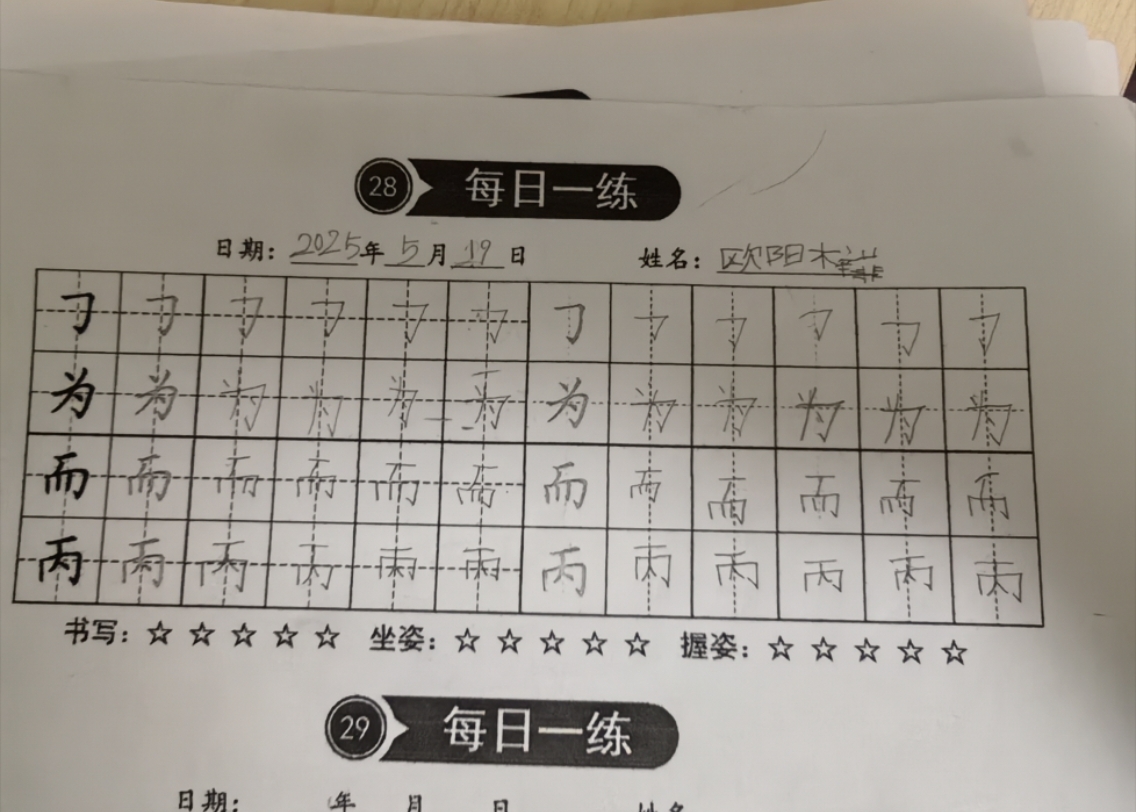 28 每日一练
日期: 2025年5月19日 姓名: 欧阳木
㇆ ㇆ ㇆ ㇆ ㇆ ㇆ ㇆ ㇆ ㇆ ㇆ ㇆ ㇆
为 为 为 为 为 为 为 为 为 为 为 为
而 而 而 而 而 而 而 而 而 而 而 而
丙 丙 丙 丙 丙 丙 丙 丙 丙 丙 丙 丙
书写: ☆ ☆ ☆ ☆ ☆ 坐姿: ☆ ☆ ☆ ☆ ☆ 握姿: ☆ ☆ ☆ ☆ ☆
29 每日一练
日期: 年 月 日 姓名